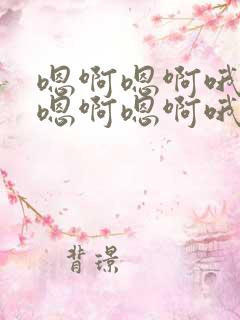 嗯啊嗯啊哦
嗯啊嗯啊哦
背璟